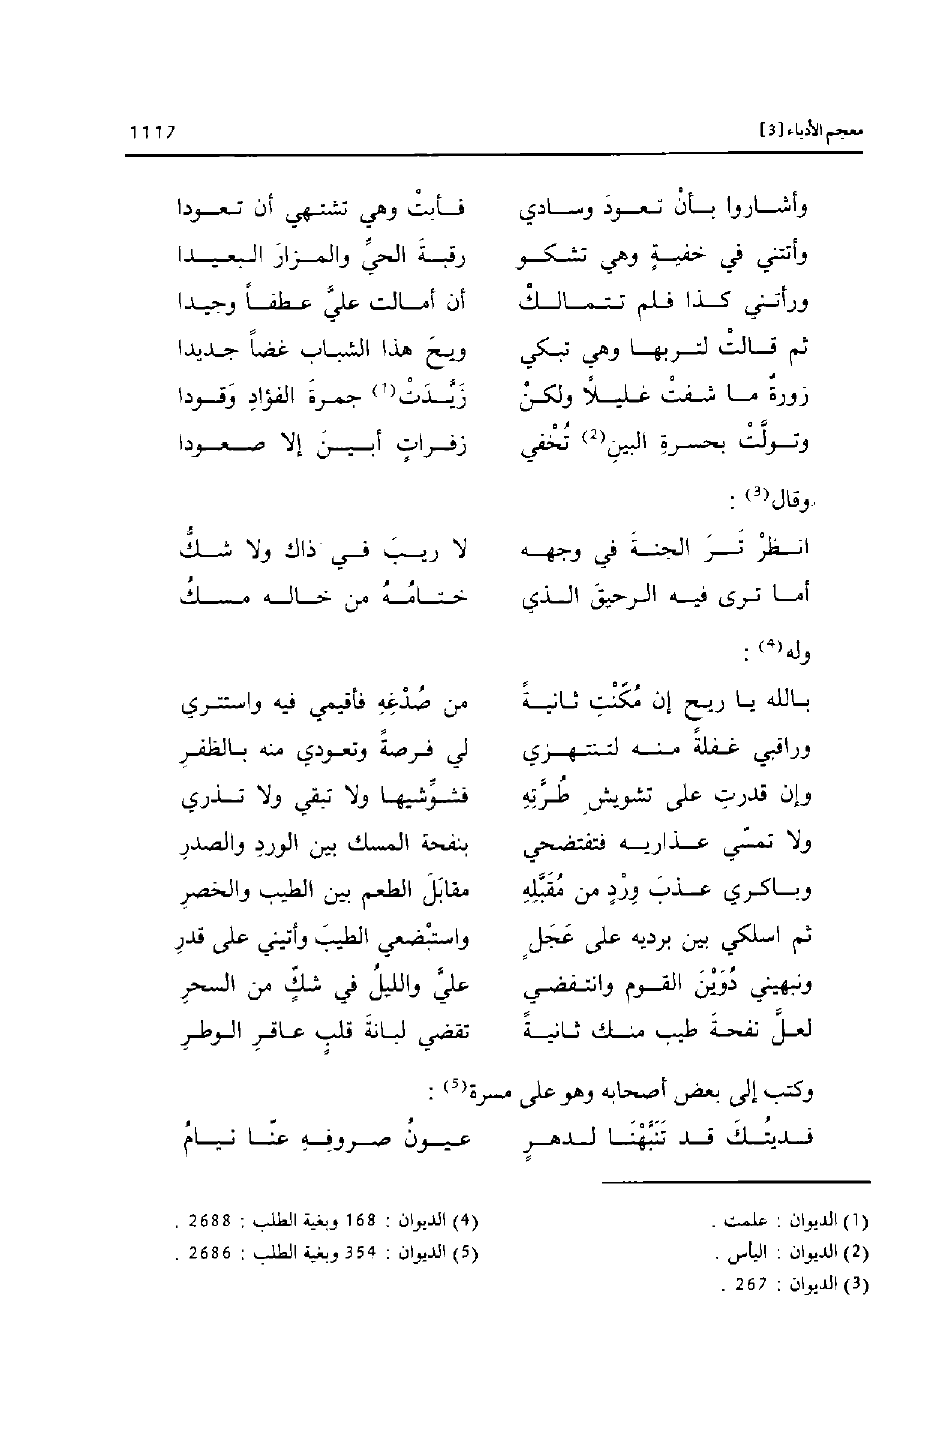 معجم الأدباء [3] 1117
وأشاروا بأنْ تعودَ وسادي فأبتْ وهي تشتهي أن تعودا
وأتتني في خفيةٍ وهي تشكو رقبةَ الحيِّ والمزارَ البعيدا
ورأتني كذا فلم تتمالكْ أن أمالت عليَّ عطفاً وحيدا
ثم قالتْ لتربها وهي تبكي ويحَ هذا الشباب غضاً جديدا
زورةٌ ما شفتْ غليلاً ولكنْ زَيَّدَتْ(1) جمرةَ الفؤادِ وَقودا
وتولَّتْ بحسرةِ البينِ(2) تُخْفي زفراتٍ أبينَ إلا صعودا
وقال(3) :
انظرْ تَرَ الجنةَ في وجهه لا ريبَ في ذاك ولا شكُّ
أما ترى فيه الرحيقَ الذي ختامُهُ من خاله مسكُ
وله(4) :
بالله يا ريح إن مُكِّنْتِ ثانيةً من صُدْغِهِ فأقيمي فيه واستتري
وراقبي غفلةً منه لتنتهزي لي فرصةً وتعودي منه بالظفرِ
وإن قدرتِ على تشويش طُرَّتِهِ فشوِّشيها ولا تبقي ولا تذري
ولا تمسّي عذاريه فتفتضحي بنفحة المسك بين الوردِ والصدَرِ
وباكري عذبَ وِرْدٍ من مُقَبَّلِهِ مقابَلَ الطعم بين الطيبِ والخصرِ
ثم اسلكي بين برديه على عَجَلٍ واستبْضعي الطيبَ وأتيني على قدرِ
ونبهيني دُوَيْنَ القوم وانتفضي عليَّ والليلُ في شكٍّ من السحرِ
لعلَّ نفحةَ طيبٍ منك ثانيةً تقضي لبانةَ قلبٍ عاقرِ الوطرِ
وكتب إلى بعض أصحابه وهو على مسرة(5) :
فديتُكَ قد تَنَبَّهْنَا لدهرٍ عيونُ صروفِهِ عنّا نيامُ
(1) الديوان : علمت .
(2) الديوان : اليأس .
(3) الديوان : 267 .
(4) الديوان : 168 وبغية الطلب : 2688 .
(5) الديوان : 354 وبغية الطلب : 2686 .